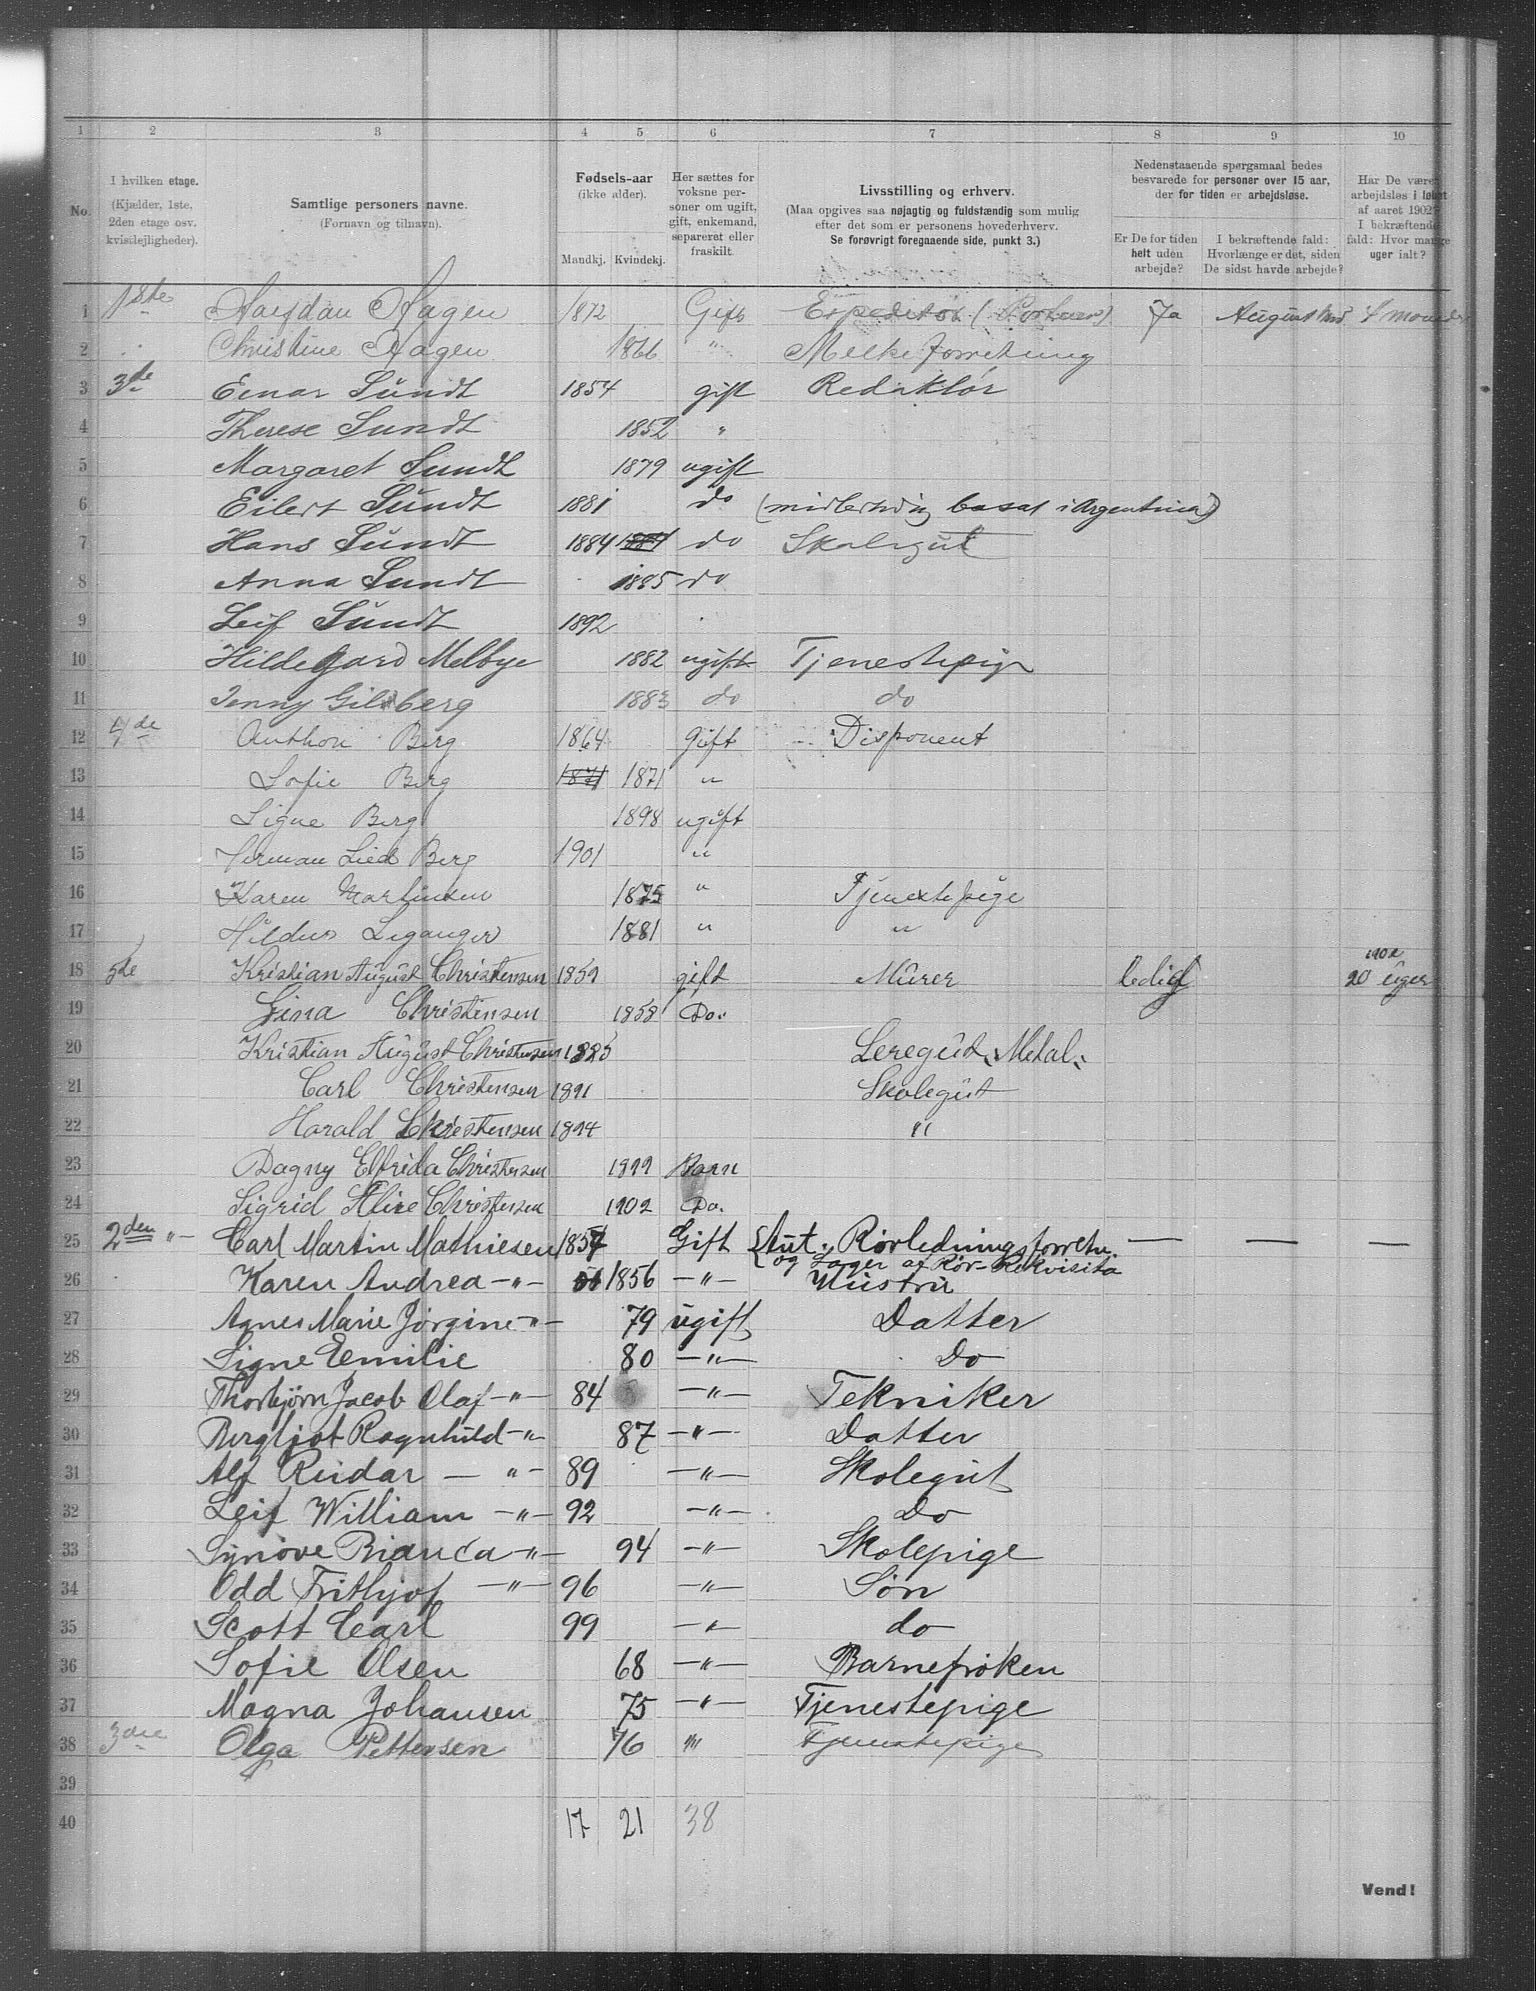 1 2 3 4 5 6 7 8 9 10
No.
I hvilken etage.
(Kjælder, 1ste,
2den etage osv.
kvistlejligheder).
Samtlige personers navne.
(Fornavn og tilnavn).
Fødsels-aar
(ikke alder).
Mandkj. Kvindekj.
Her sættes for
voksne per-
soner om ugift,
gift, enkemand,
separeret eller
fraskilt.
Livsstilling og erhverv.
(Maa opgives saa nøjagtig og fuldstændig som mulig
efter det som er personens hovederhverv.
Se forøvrigt foregaaende side, punkt 3.)
Nedenstaaende spørgsmaal bedes
besvarede for personer over 15 aar,
der for tiden er arbejdsløse.
Er De for tiden
helt uden
arbejde?
I bekræftende fald:
Hvorlænge er det, siden
De sidst havde arbejde?
Har De været
arbejdsløs i løbet
af aaret 1902?
I bekræftende
fald: Hvor mange
uger ialt?
1 1ste Halfdan Hagen 1872 Gift Expeditør ( ) Ja August 4 maaneder
2 Christine Hagen 1866 " Melkeforretning
3 3de Einar Sundt 1854 gift Redaktør
4 Therese Sundt 1852 "
5 Margaret Sundt 1879 ugift
6 Eilert Sundt 1881 do (midlertidig bosat i Argentina)
7 Hans Sundt 1884 1884 do Skolegut
8 Anna Sundt 1885 do
9 Leif Sundt 1892
10 Hildegard Melbye 1882 ugift Tjenestepige
11 Jenny Gilsberg 1883 do do
12 4de Anthon Berg 1864 Gift Disponent
13 Sofie Berg 1871 1871 "
14 Signe Berg 1898 ugift
15 Herman Lied Berg 1901 "
16 Karen Martinsen 1875 " Tjenestepige
17 Hildur Leganger 1881 " "
18 5de Kristian August Christensen 1859 gift Murer ledig 1902 20 uger
19 Gina Christensen 1858 Do.
20 Kristian August Christensen 1885 Leregut "Metal"
21 Carl Christensen 1891 Skolegut
22 Harald Christensen 1894 "
23 Dagny Elfrida Christensen 1899 Barn
24 Sigrid Alice Christensen 1902 Do.
25 2den "- Carl Martin Mathiesen 1857 Gift {Aut. Rørledningsforretn. — — —
og Lager af Rør-Rekvisita
26 Karen Andrea -"- 1856 -"- Hustru
27 Agnes Marie Jørgine -"- 79 ugift Datter
28 Signe Emilie 80 -"- Do
29 Thorbjørn Jacob Olaf -"- 84 -"- Tekniker
30 Bergljot Ragnhild -"- 87 -"- Datter
31 Alf Reidar -"- 89 -"- Skolegut
32 Leif William -"- 92 -"- Do
33 Synøve Bianca -"- 94 -"- Skolepige
34 Odd Frithjof -"- 96 -"- Søn
35 Scott Carl 99 -"- do
36 Sofie Olsen 68 -"- Barnefrøken
37 Magna Johansen 75 -"- Tjenestepige
38 3die Olga Pettersen 76 -"- Tjenestepige
39
40 17 21 38
Vend!